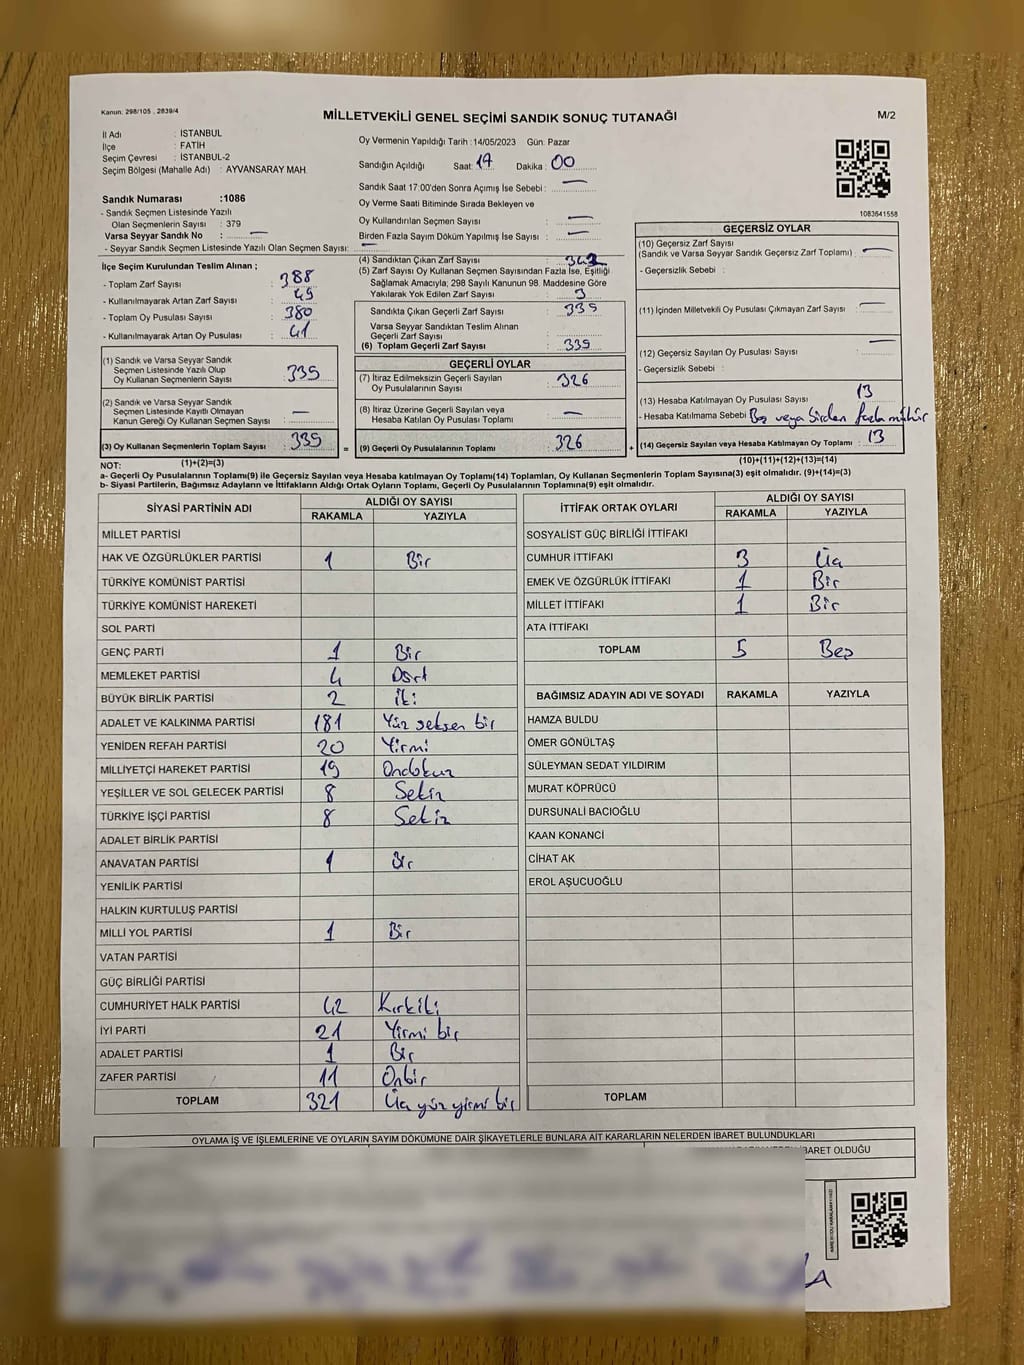 Kanun: 298/105 , 2839/4
MİLLETVEKİLİ GENEL SEÇİMİ SANDIK SONUÇ TUTANAĞI
M/2
İl Adı : İSTANBUL
İlçe : FATİH
Seçim Çevresi : İSTANBUL-2
Seçim Bölgesi (Mahalle Adı) : AYVANSARAY MAH.
Sandık Numarası :1086
- Sandık Seçmen Listesinde Yazılı
Olan Seçmenlerin Sayısı : 379
Varsa Seyyar Sandık No : —
- Seyyar Sandık Seçmen Listesinde Yazılı Olan Seçmen Sayısı: —
Oy Vermenin Yapıldığı Tarih : 14/05/2023 Gün: Pazar
Sandığın Açıldığı Saat: 17 Dakika: 00
Sandık Saat 17:00'den Sonra Açılmış İse Sebebi : —
Oy Verme Saati Bitiminde Sırada Bekleyen ve
Oy Kullandırılan Seçmen Sayısı : —
Birden Fazla Sayım Döküm Yapılmış İse Sayısı : —
1083641558
İlçe Seçim Kurulundan Teslim Alınan ;
- Toplam Zarf Sayısı : 388
- Kullanılmayarak Artan Zarf Sayısı : 49
- Toplam Oy Pusulası Sayısı : 380
- Kullanılmayarak Artan Oy Pusulası : 41
(1) Sandık ve Varsa Seyyar Sandık
Seçmen Listesinde Yazılı Olup
Oy Kullanan Seçmenlerin Sayısı : 339
(2) Sandık ve Varsa Seyyar Sandık
Seçmen Listesinde Kayıtlı Olmayan
Kanun Gereği Oy Kullanan Seçmen Sayısı : —
(3) Oy Kullanan Seçmenlerin Toplam Sayısı : 339
(1)+(2)=(3)
(4) Sandıktan Çıkan Zarf Sayısı : 342
(5) Zarf Sayısı Oy Kullanan Seçmen Sayısından Fazla İse, Eşitliği
Sağlamak Amacıyla; 298 Sayılı Kanunun 98. Maddesine Göre
Yakılarak Yok Edilen Zarf Sayısı : 3
Sandıkta Çıkan Geçerli Zarf Sayısı : 339
Varsa Seyyar Sandıktan Teslim Alınan
Geçerli Zarf Sayısı :
(6) Toplam Geçerli Zarf Sayısı : 339
GEÇERLİ OYLAR
(7) İtiraz Edilmeksizin Geçerli Sayılan
Oy Pusulalarının Sayısı : 326
(8) İtiraz Üzerine Geçerli Sayılan veya
Hesaba Katılan Oy Pusulası Toplamı : —
= (9) Geçerli Oy Pusulalarının Toplamı : 326
GEÇERSİZ OYLAR
(10) Geçersiz Zarf Sayısı
(Sandık ve Varsa Seyyar Sandık Geçersiz Zarf Toplamı) : —
- Geçersizlik Sebebi :
(11) İçinden Milletvekili Oy Pusulası Çıkmayan Zarf Sayısı : —
(12) Geçersiz Sayılan Oy Pusulası Sayısı : —
- Geçersizlik Sebebi :
(13) Hesaba Katılmayan Oy Pusulası Sayısı : 13
- Hesaba Katılmama Sebebi : Boş veya birden fazla mühür
+ (14) Geçersiz Sayılan veya Hesaba Katılmayan Oy Toplamı : 13
(10)+(11)+(12)+(13)=(14)
NOT:
a- Geçerli Oy Pusulalarının Toplamı(9) ile Geçersiz Sayılan veya Hesaba katılmayan Oy Toplamı(14) Toplamları, Oy Kullanan Seçmenlerin Toplam Sayısına(3) eşit olmalıdır. (9)+(14)=(3)
b- Siyasi Partilerin, Bağımsız Adayların ve İttifakların Aldığı Ortak Oyların Toplamı, Geçerli Oy Pusulalarının Toplamına(9) eşit olmalıdır.
SİYASİ PARTİNİN ADI ALDIĞI OY SAYISI
RAKAMLA YAZIYLA
MİLLET PARTİSİ
HAK VE ÖZGÜRLÜKLER PARTİSİ 1 Bir
TÜRKİYE KOMÜNİST PARTİSİ
TÜRKİYE KOMÜNİST HAREKETİ
SOL PARTİ
GENÇ PARTİ 1 Bir
MEMLEKET PARTİSİ 4 Dört
BÜYÜK BİRLİK PARTİSİ 2 İki
ADALET VE KALKINMA PARTİSİ 181 Yüz seksen bir
YENİDEN REFAH PARTİSİ 20 Yirmi
MİLLİYETÇİ HAREKET PARTİSİ 19 Ondokuz
YEŞİLLER VE SOL GELECEK PARTİSİ 8 Sekiz
TÜRKİYE İŞÇİ PARTİSİ 8 Sekiz
ADALET BİRLİK PARTİSİ
ANAVATAN PARTİSİ 1 Bir
YENİLİK PARTİSİ
HALKIN KURTULUŞ PARTİSİ
MİLLİ YOL PARTİSİ 1 Bir
VATAN PARTİSİ
GÜÇ BİRLİĞİ PARTİSİ
CUMHURİYET HALK PARTİSİ 42 Kırkiki
İYİ PARTİ 21 Yirmi bir
ADALET PARTİSİ 1 Bir
ZAFER PARTİSİ 11 Onbir
TOPLAM 321 Üç yüz yirmi bir
İTTİFAK ORTAK OYLARI ALDIĞI OY SAYISI
RAKAMLA YAZIYLA
SOSYALİST GÜÇ BİRLİĞİ İTTİFAKI
CUMHUR İTTİFAKI 3 Üç
EMEK VE ÖZGÜRLÜK İTTİFAKI 1 Bir
MİLLET İTTİFAKI 1 Bir
ATA İTTİFAKI
TOPLAM 5 Beş
BAĞIMSIZ ADAYIN ADI VE SOYADI RAKAMLA YAZIYLA
HAMZA BULDU
ÖMER GÖNÜLTAŞ
SÜLEYMAN SEDAT YILDIRIM
MURAT KÖPRÜCÜ
DURSUNALİ BACIOĞLU
KAAN KONANCİ
CİHAT AK
EROL AŞUCUOĞLU
TOPLAM
OYLAMA İŞ VE İŞLEMLERİNE VE OYLARIN SAYIM DÖKÜMÜNE DAİR ŞİKAYETLERLE BUNLARA AİT KARARLARIN NELERDEN İBARET BULUNDUKLARI
İBARET OLDUĞU